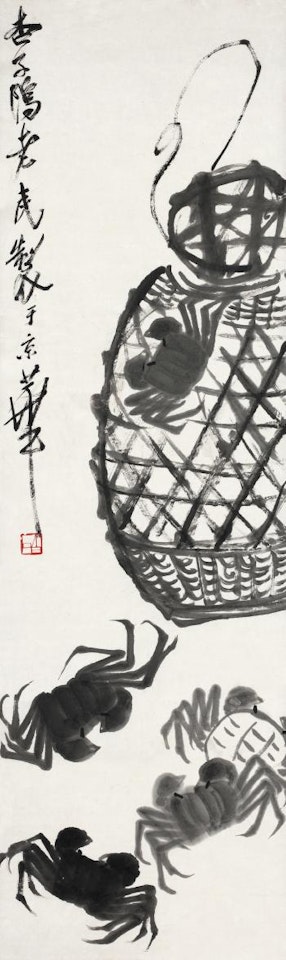 杏子隖老民製于京華